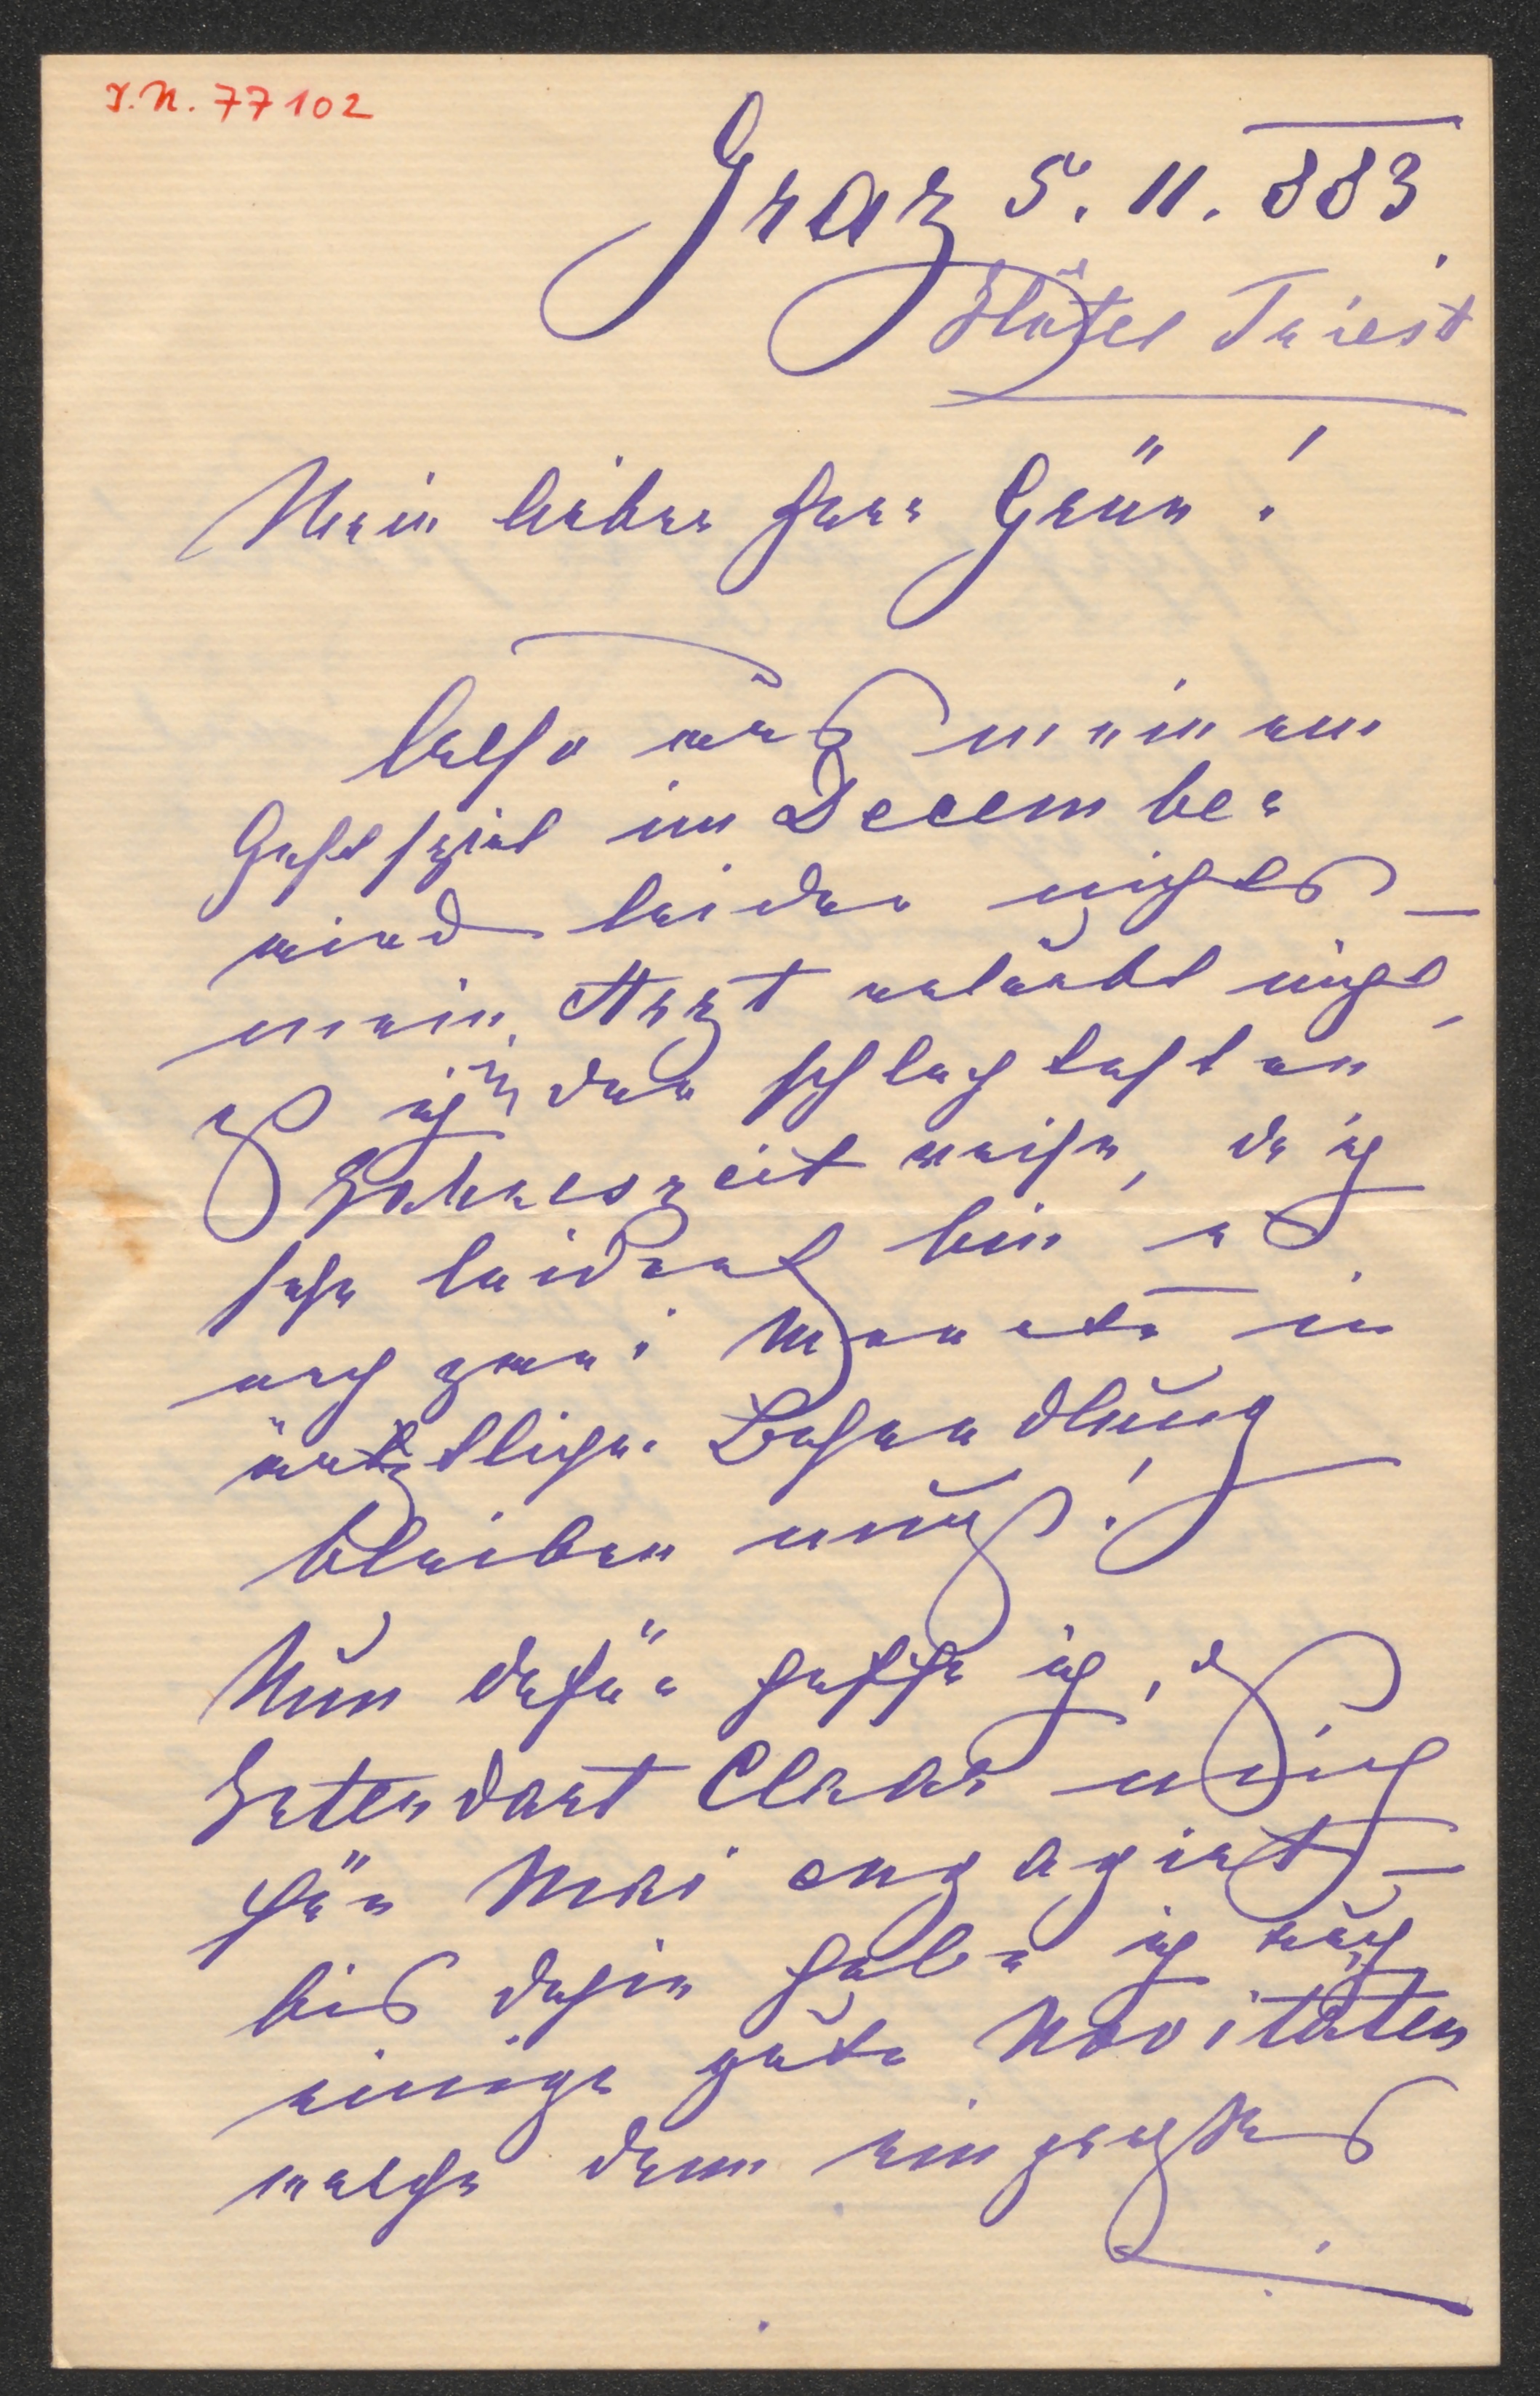 I.N. 77102
Graz 5. 11. 883.
Hôtel Triest
Mein lieber Herr Grün!
Also aus meinem
Gastspiel im December
wird leider nichts –
mein Arzt erlaubt nicht,
daß ich in der schlechtesten
Jahreszeit reise, da ich
sehr leidend bin u
noch zwei Monate in
ärztlicher Behandlung
bleiben muß!
Nun dafür hoffe ich, daß
Intendant Claar mich
für Mai engagirt –
bis dahin habe ich auch
einige gute Novitäten
welche dann